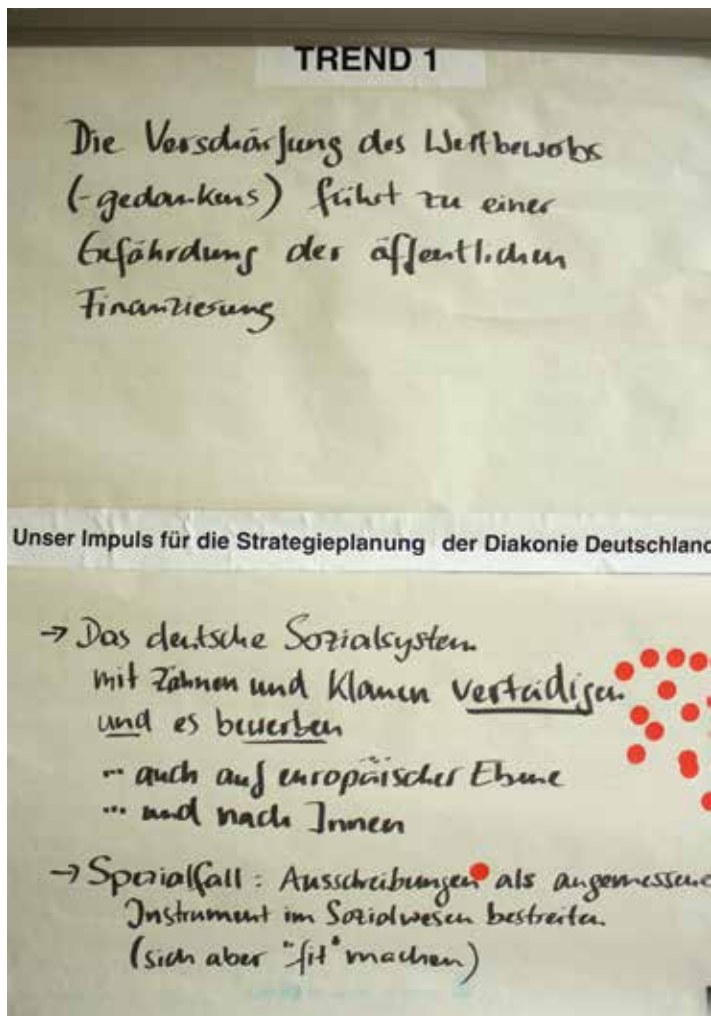 TREND 1
Die Verschärfung des Wettbewerbs
(-gedankens) führt zu einer
Gefährdung der öffentlichen
Finanzierung
Unser Impuls für die Strategieplanung der Diakonie Deutschland
→ Das deutsche Sozialsystem
mit Zähnen und Klauen verteidigen
und es bewerben
... auch auf europäischer Ebene
... und nach Innen
→ Spezialfall: Ausschreibungen als angemessene
Instrument im Sozialwesen bestreiten.
(sich aber "fit" machen)